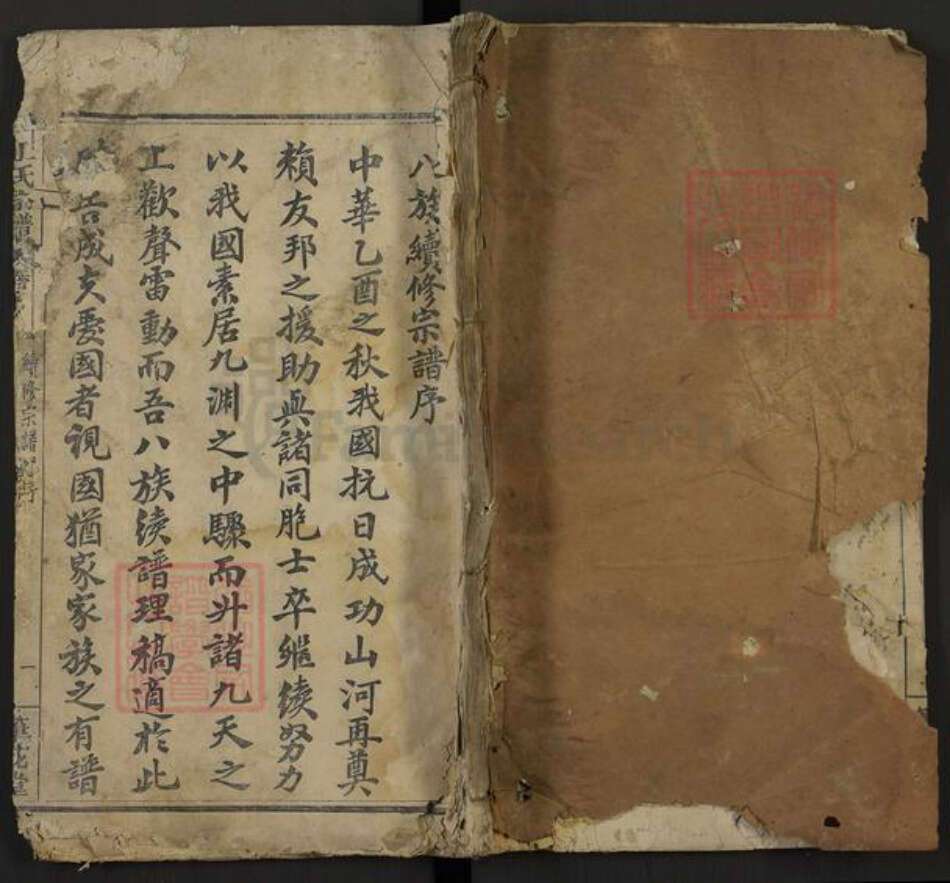 八族續修宗譜序
中華乙酉之秋我國抗日成功山河再奠
賴友邦之援助與諸同胞士卒繼续努力
以我國素居九渊之中驟而升諸九天之
上歡聲雷動而吾八族续譜理稿適於此
告成夫愛國者視國猶家家族之有譜
氏宗譜
續修宗譜
一